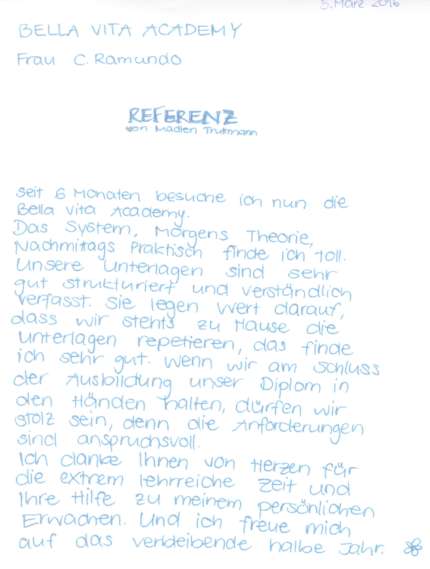 5. März 2016
BELLA VITA ACADEMY
Frau C. Ramundo
REFERENZ
von Madlen Trutmann
Seit 6 Monaten besuche ich nun die
Bella Vita Academy.
Das System, Morgens Theorie,
Nachmitags Praktisch finde ich toll.
Unsere Unterlagen sind sehr
gut strukturiert und verständlich
verfasst. Sie legen Wert darauf,
dass wir stehts zu Hause die
Unterlagen repetieren, das finde
ich sehr gut. Wenn wir am Schluss
der Ausbildung unser Diplom in
den Händen halten, dürfen wir
stolz sein, denn die Anforderungen
sind anspruchsvoll.
Ich danke Ihnen von Herzen für
die extrem lehrreiche Zeit und
Ihre Hilfe zu meinem persönlichen
Erwachen. Und ich freue mich
auf das verbleibende halbe Jahr.